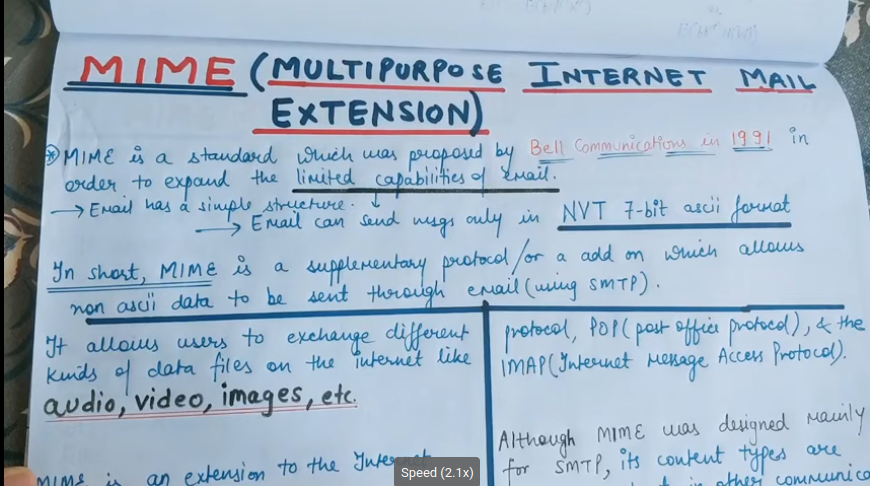 MIME (MULTIPURPOSE INTERNET MAIL
EXTENSION)
MIME is a standard which was proposed by Bell Communications in 1991 in
order to expand the limited capabilities of Email.
→ Email has a simple structure. ↓
→ Email can send msgs only in NVT 7-bit ascii format
In short, MIME is a supplementary protocol/or a add on which allows
non ascii data to be sent through email (using SMTP).
It allows users to exchange different
kinds of data files on the internet like
audio, video, images, etc.
MIME is an extension to the Internet
protocol, POP (post office protocol), & the
IMAP (Internet Message Access Protocol).
Although MIME was designed mainly
for SMTP, its content types are
in other communica
Speed (2.1x)